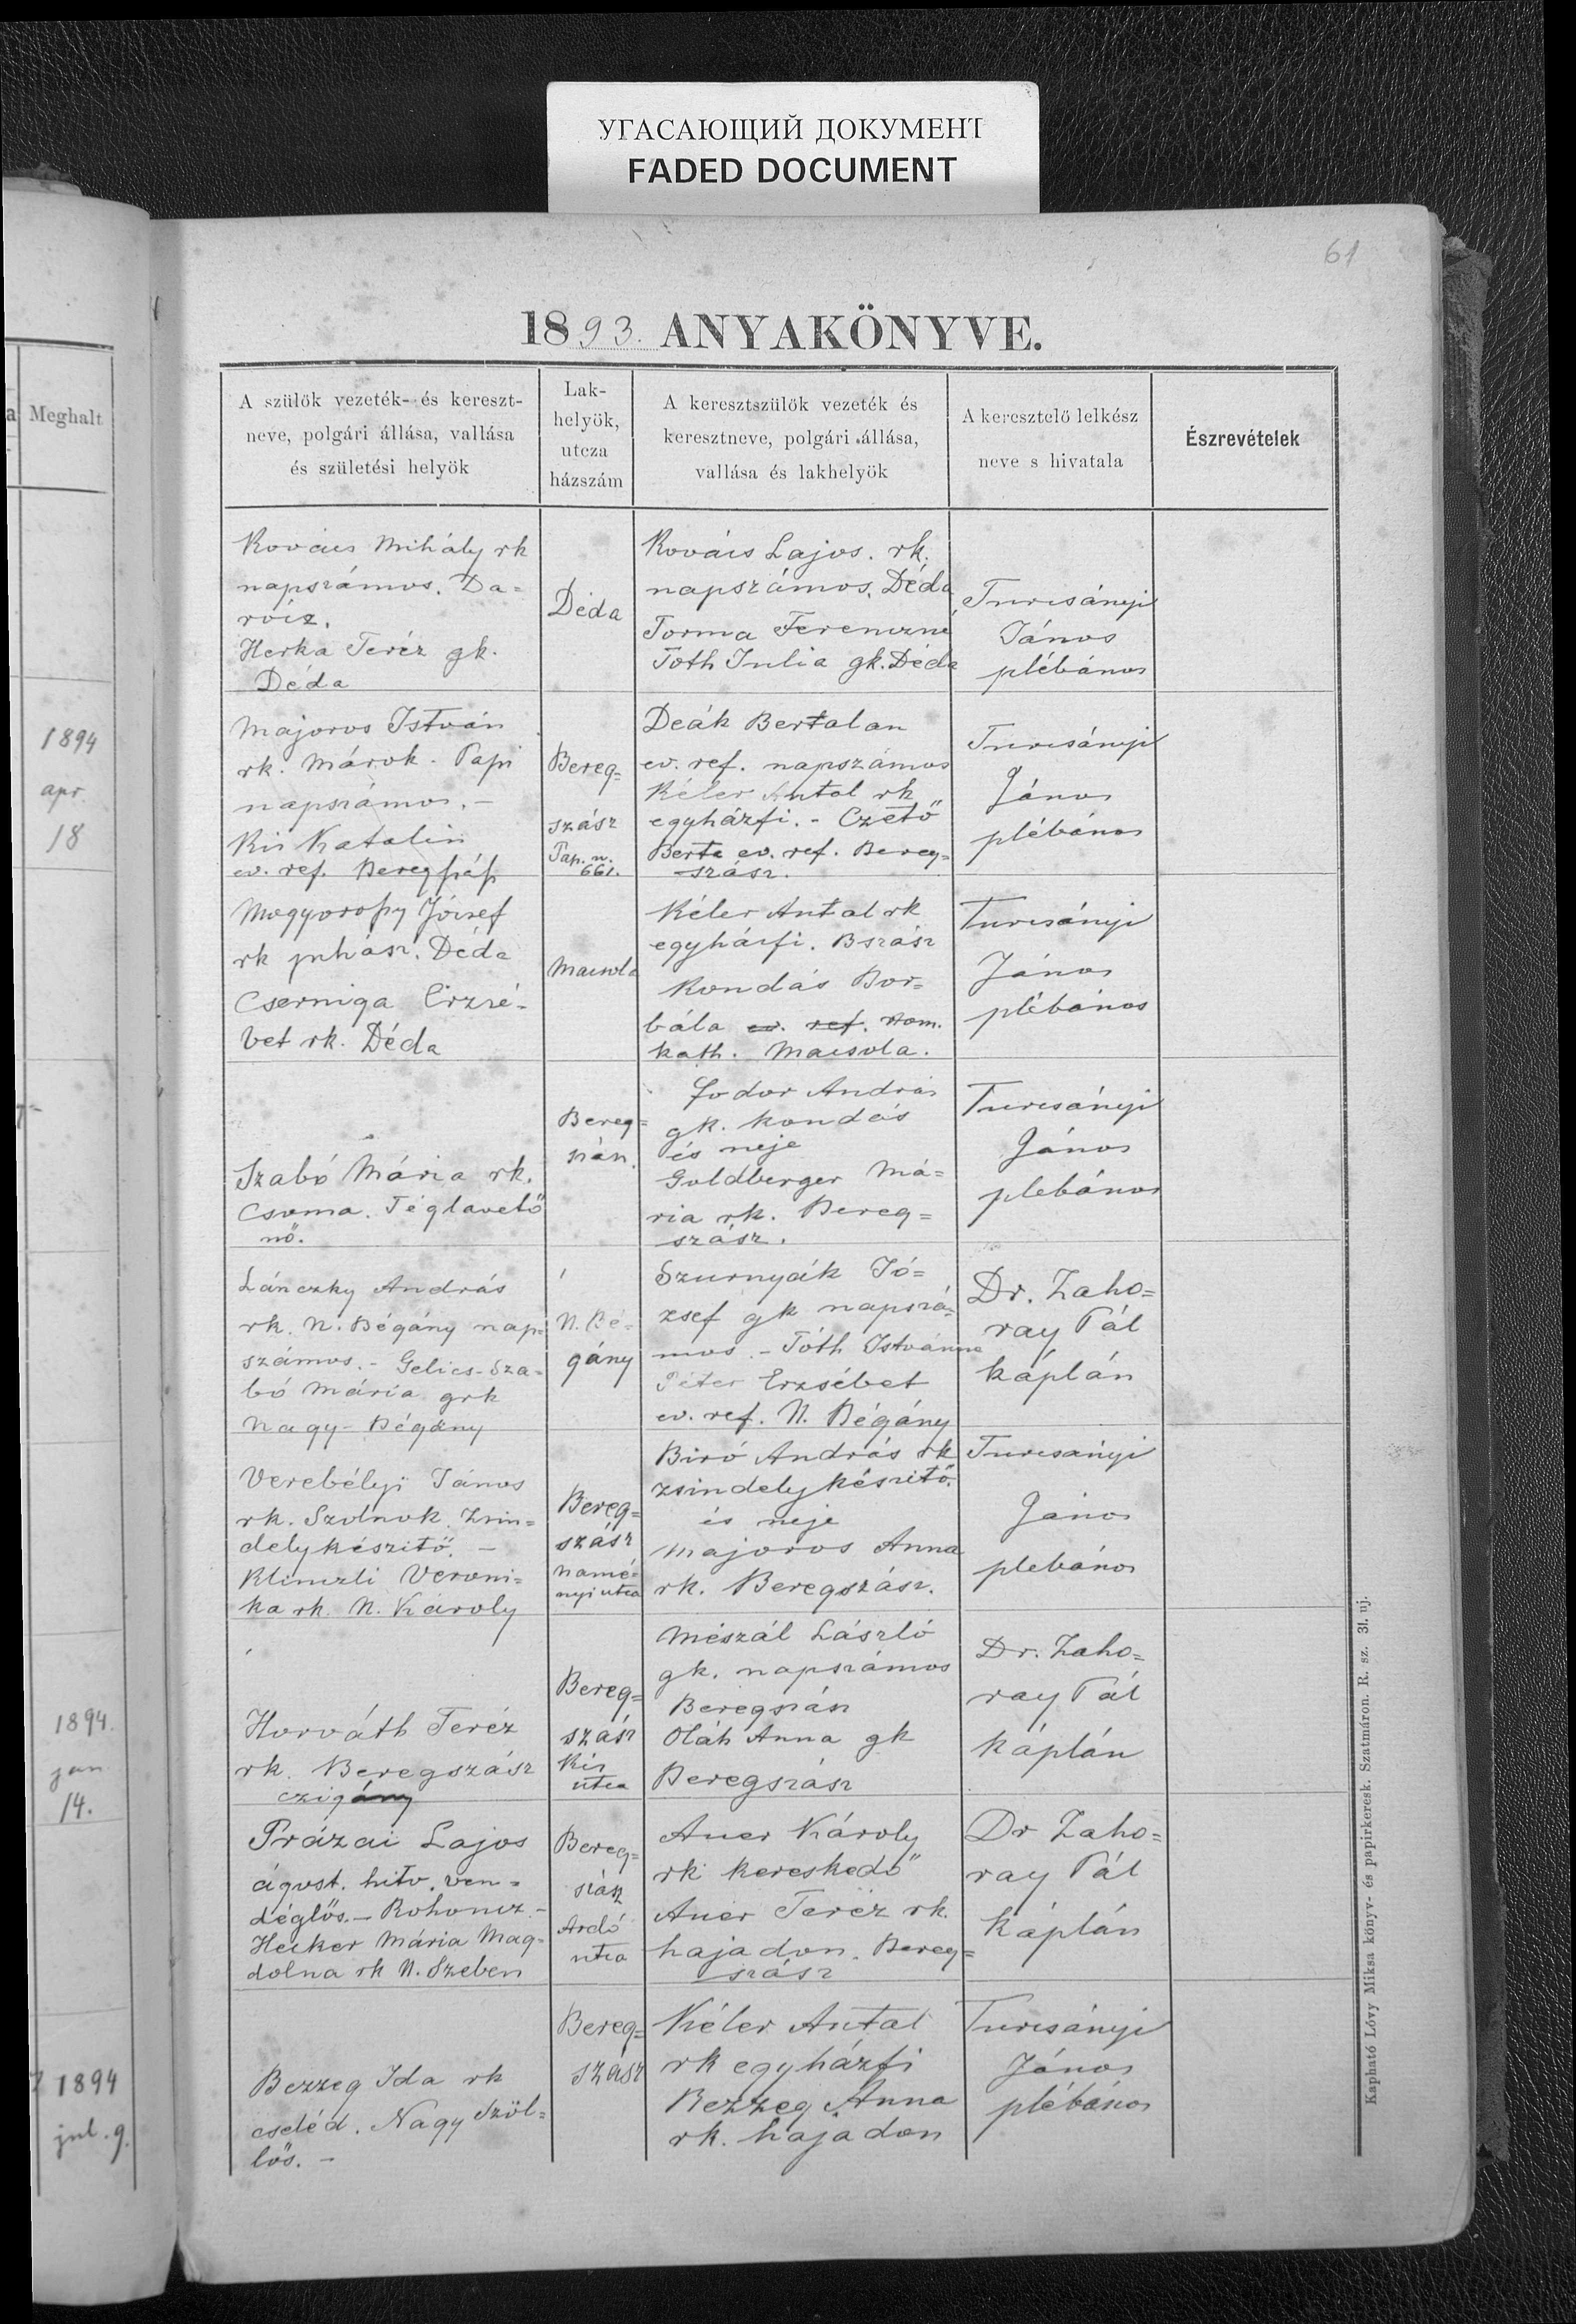 УГАСАЮЩИЙ ДОКУМЕНТ
FADED DOCUMENT
61
1893. ANYAKÖNYVE.
Meghalt
1894
apr
18
1894.
jan
14.
1894
jul. 9.
A szülök vezeték- és kereszt-
neve, polgári állása, vallása
és születési helyök
Lak-
helyök,
utcza
házszám
A keresztszülök vezeték és
keresztneve, polgári állása,
vallása és lakhelyök
A keresztelő lelkész
neve s hivatala
Észrevételek
Kovács Mihály rk
napszámos. Da=
rócz.
Herka Teréz gk.
Déda
Déda
Kovács Lajos. rk.
napszámos. Déda
Torma Ferenczné
Tóth Julia gk. Déda
Turcsányi
János
plébános
Majoros István
rk. Márok-Papi
napszámos. -
Kis Katalin
ev. ref. Beregszász
Bereg=
szász
Pap. u.
661.
Deák Bertalan
ev. ref. napszámos
Kéler Antal rk
egyházfi. - Czető
Berta ev. ref. Bereg=
szász.
Turcsányi
János
plébános
Mogyorossy József
rk juhász. Déda
Cserniga Erzsé-
bet rk. Déda
Macsola
Kéler Antal rk
egyházfi. Bszász
Kondás Bor=
bála ev. ref. rom.
kath. Macsola.
Turcsányi
János
plébános
Szabó Mária rk.
Csoma. Téglavető
nő.
Bereg=
szász.
Fodor András
gk. kondás
és neje
Goldberger Má=
ria rk. Bereg=
szász.
Turcsányi
János
plebános
Lánczky András
rk. N. Bégány nap=
számos. - Gelics-Sza=
bó Mária grk
Nagy-Bégány
N. Bé=
gány
Szurnyák Jó=
zsef gk napszá=
mos. - Tóth Istvánne
Péter Erzsébet
ev. ref. N. Bégány
Dr. Zaho=
ray Pál
káplán
Verebélyi János
rk. Szolnok. Zsin=
delykészitő. -
Klinczli Veroni=
ka rk. N. Károly
Bereg=
szász
Namé=
nyi utca
Biró András rk
zsindelykészitő.
és neje
Majoros Anna
rk. Beregszász.
Turcsányi
János
plebános
Horváth Teréz
rk. Beregszász
czigány
Bereg=
szász
Kis
utca
Mészál László
gk. napszámos
Beregszász
Oláh Anna gk
Beregszász
Dr. Zaho=
ray Pál
káplán
Prázai Lajos
ágost. hitv. ven=
déglős. - Rohoncz. -
Hecker Mária Mag=
dolna rk N. Szeben
Bereg=
szász
Ardó
utca
Auer Károly
rk kereskedő
Auer Teréz rk.
hajadon. Bereg=
szász
Dr Zaho=
ray Pál
káplán
Bezzeg Ida rk
cseléd. Nagy Szöl=
lös. -
Bereg=
szász
Kéler Antal
rk egyházfi
Bezzeg Anna
rk. hajadon
Turcsányi
János
plébános
Kapható Lóvy Miksa könyv- és papirkeresk. Szatmáron. R. sz. 31. uj.